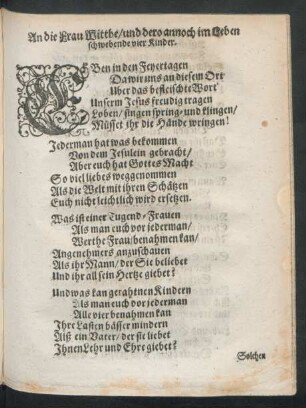 An die Frau Wittbe/und dero annoch im Leben
schwebende vier Kinder.
EBen in den Feyertagen
Da wir uns an diesem Ort
Uber das befleischte Wort
Unserm Jesus freudig tragen
Loben/singen spring-und klingen/
Müsset ihr die Hände wringen!
Jederman hat was bekommen
Von dem Jesulein gebracht/
Aber euch hat Gottes Macht
So viel liebes weggenommen
Als die Welt mit ihren Schätzen
Euch nicht leichtlich wird ersetzen.
Was ist einer Tugend-Frauen
Als man euch vor jederman/
Werthe Frau/benahmen kan/
Angenehmers anzuschauen
Als ihr Mann/der Sie beliebet
Und ihr all sein Hertze giebet?
Und was kan gerahtnen Kindern
Als man euch vor jederman
Alle vier benahmen kan
Ihre Lasten bässer mindern
Alß ein Vater/der sie liebet
Ihnen Lehr und Ehre giebet?
Solchen